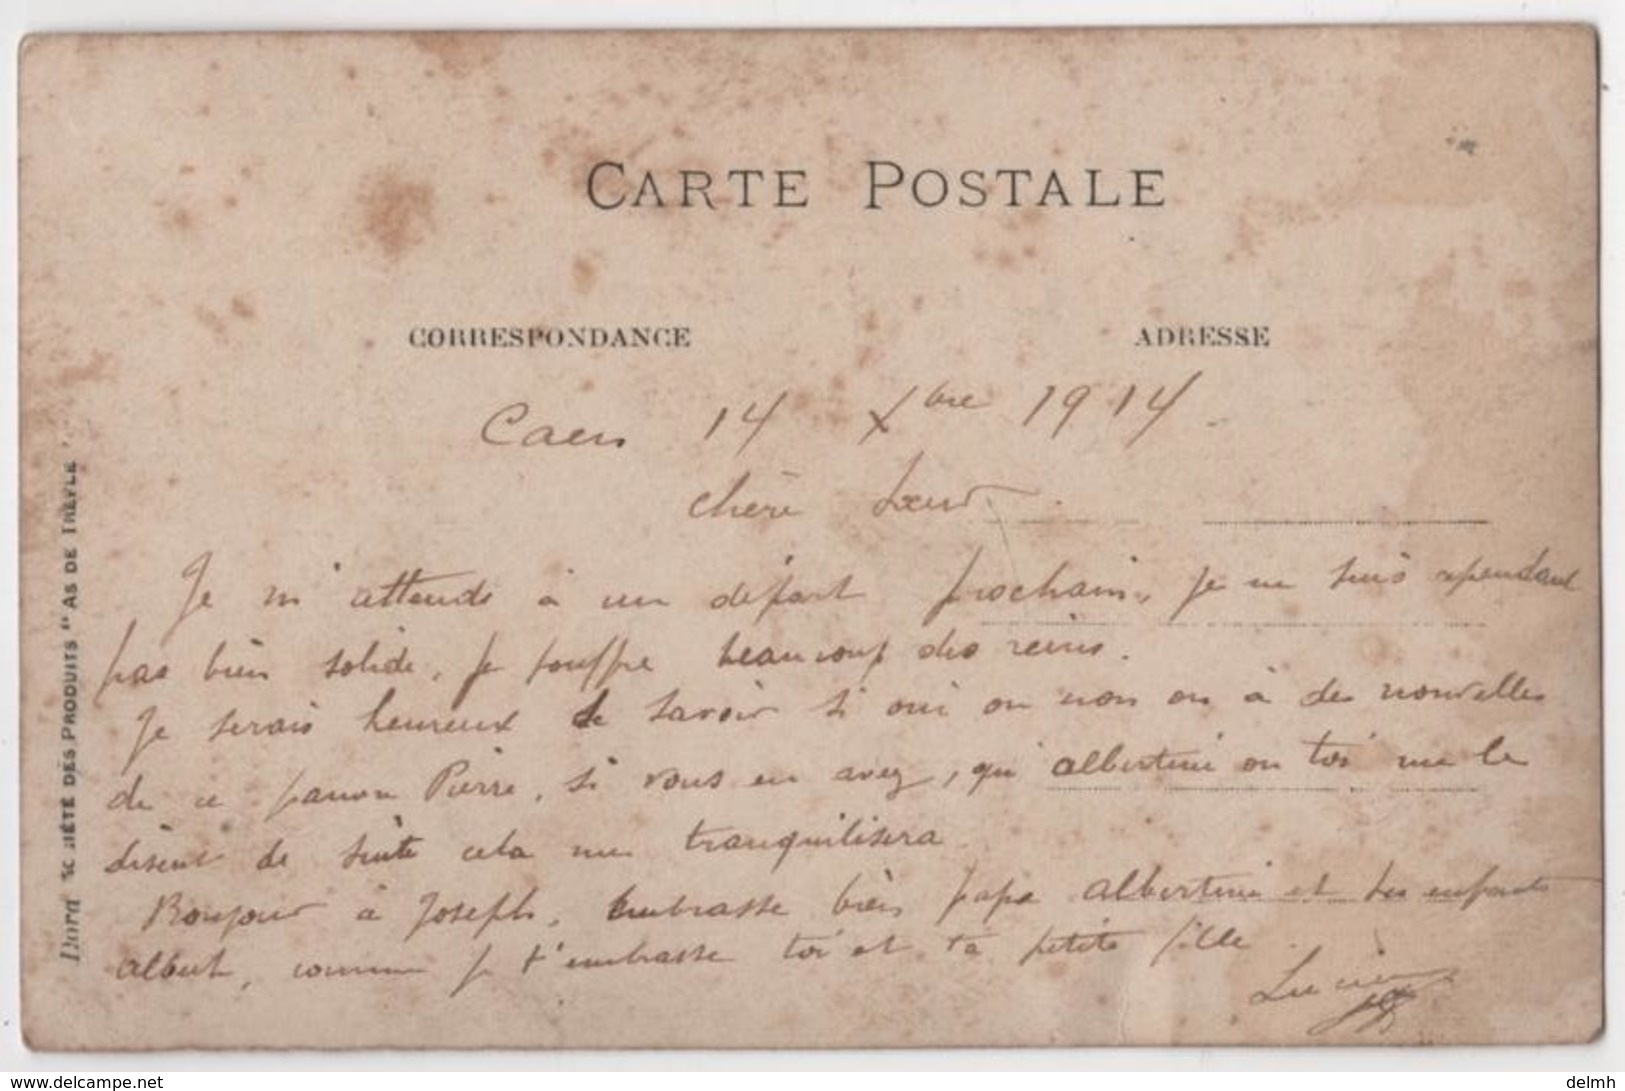 CARTE POSTALE
CORRESPONDANCE
ADRESSE
Caen 14 Xbre 1914.
Chère Sœur
Je m'attends à un départ prochain, je ne suis cependant
pas bien solide, je souffre beaucoup des reins.
Je serais heureux de savoir si oui ou non on à des nouvelles
de ce pauvre Pierre, si vous en avez, qui albertine ou toi me le
disent de suite cela me tranquilisera
Bonjour à Joseph, Embrasse bien papa albertine et les enfants
albert, comme je t'embrasse toi et ta petite fille.
Lucien
DES PRODUITS "AS DE TRÈFLE"
delcampe.net
delmh